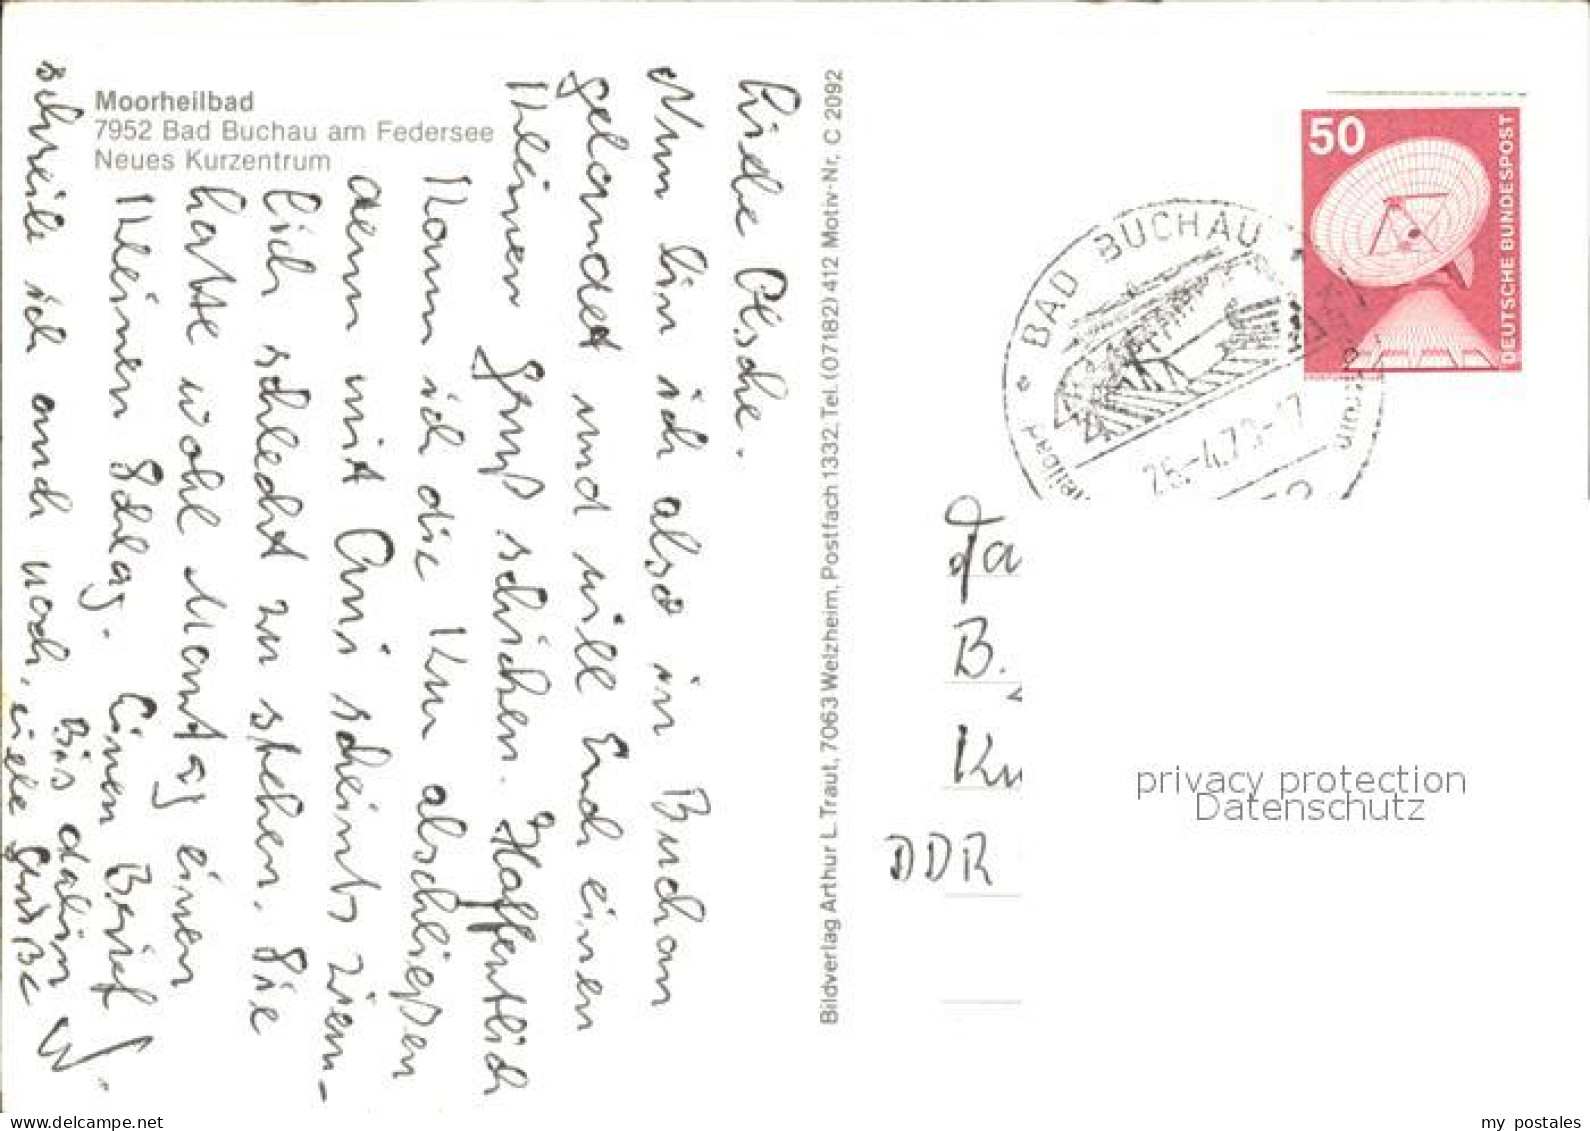 Moorheilbad
7952 Bad Buchau am Federsee
Neues Kurzentrum
Liebe Olsche.
Nun bin ich also in Buchau
gelandet und will Euch einen
kleinen Gruß schicken. Hoffentlich
kann ich die Kur abschließen
denn mit Omi scheint's ziem-
lich schlecht zu stehen. Sie
hatte wohl Montag einen
kleinen Schlag. Einen Brief
schreibe ich auch noch, Bis dahin
viele Grüße
Bildverlag Arthur L. Traut, 7063 Welzheim, Postfach 1332, Tel. (07182) 412 Motiv-Nr. C 2092
50
DEUTSCHE BUNDESPOST
BAD BUCHAU
B.
DDR
privacy protection
Datenschutz
my postales